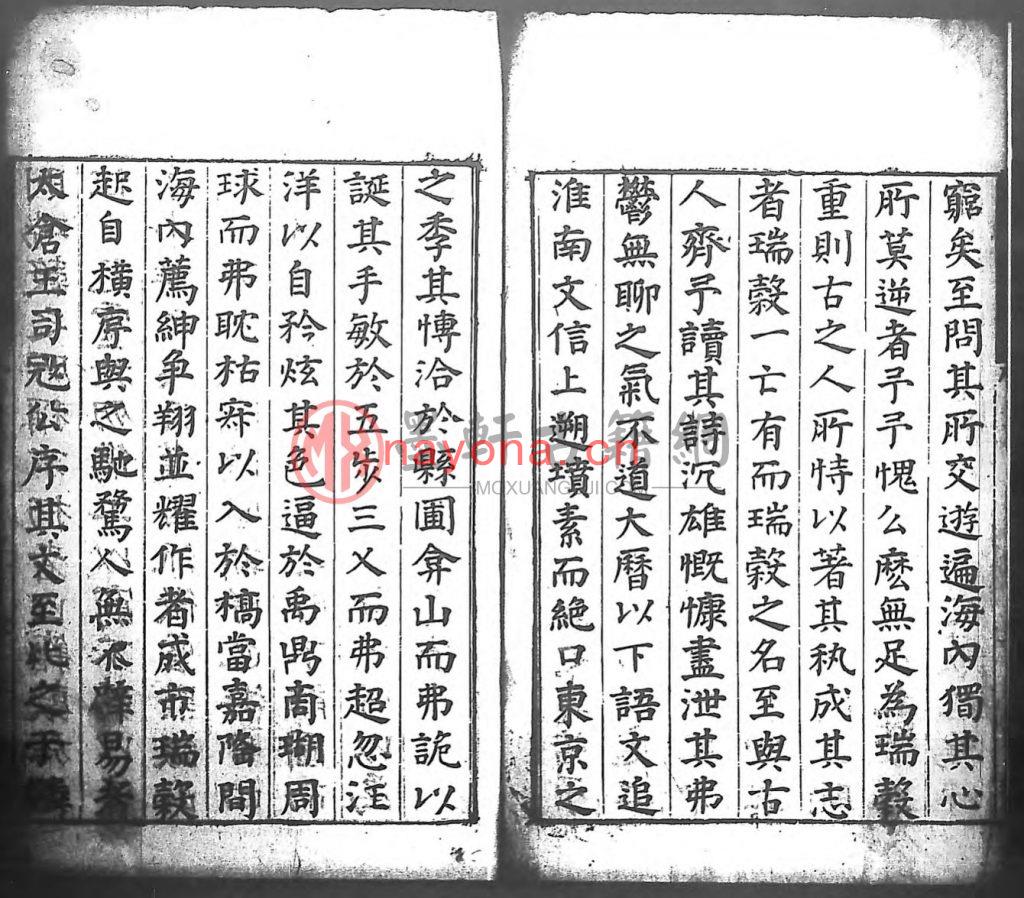 窮矣至問其所交遊遍海內獨其心
所莫逆者予予愧么麼無足為瑞縠
重則古之人所恃以著其執成其志
者瑞縠一亡有而瑞縠之名至與古
人齊予讀其詩沉雄慨慷盡泄其弗
鬱無聊之氣不道大曆以下語文追
淮南文信上遡墳素而絕口東京之
之季其博洽於縣圃弇山而弗詭以
誕其手敏於五步三乂而弗超忽汪
洋以自矜炫其色逼於禹鼎商瑚周
球而弗耽枯寂以入於槁當嘉隆間
海內薦紳争翔並耀作者成市瑞縠
起自橫序與之馳騖人無不辟易者
太倉王司冠公序其文至比之于
墨軒古籍網
MOXUANGUJI.C
nayona.cn